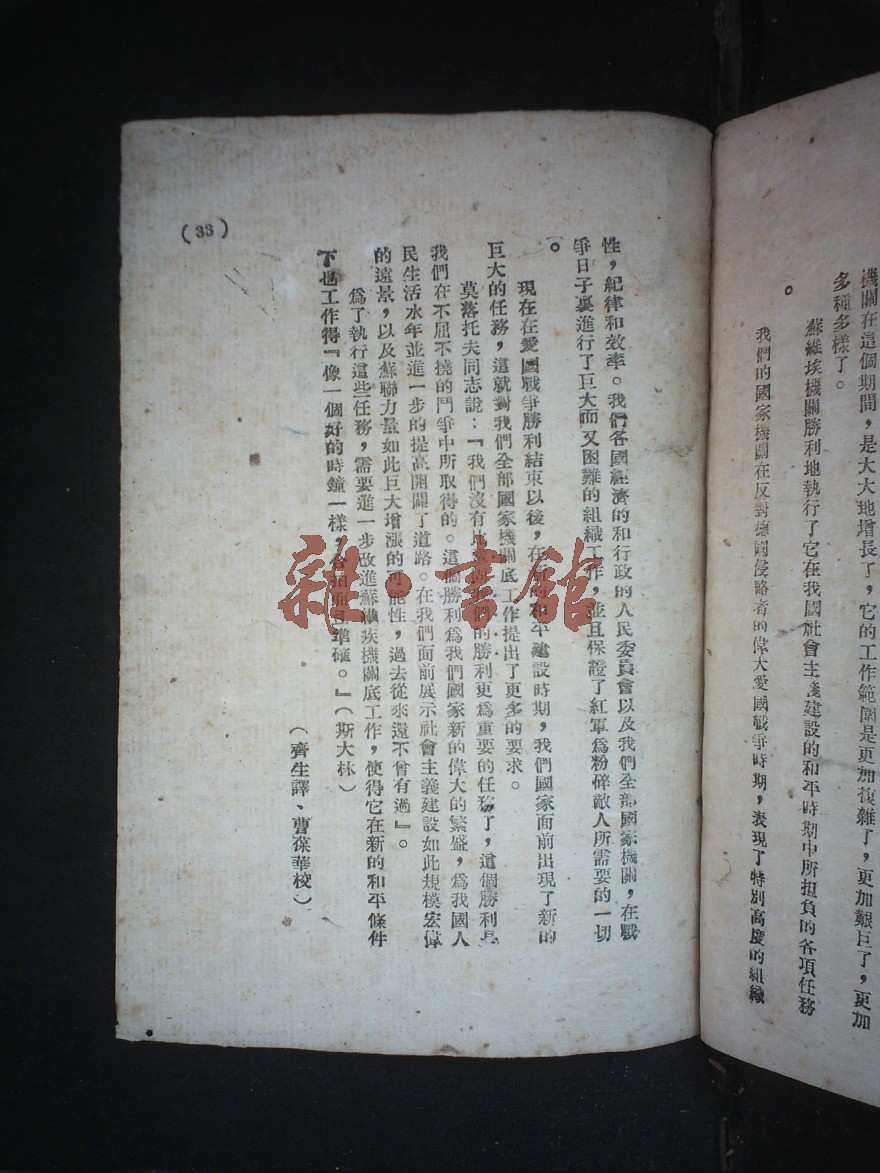 機關在這個期間，是大大地增長了，它的工作範圍是更加複雜了，更加艱巨了，更加
多種多樣了。
蘇維埃機關勝利地執行了它在我國社會主義建設的和平時期中所担負的各項任務
。
我們的國家機關在反對德國侵略者的偉大愛國戰爭時期，表現了特別高度的組織
性，紀律和效率。我們各國經濟的和行政的人民委員會以及我們全部國家機關，在戰
爭日子裏進行了巨大而又困難的組織工作，並且保證了紅軍為粉碎敵人所需要的一切
。
現在在愛國戰爭勝利結束以後，在新的和平建設時期，我們國家面前出現了新的
巨大的任務，這就對我們全部國家機關底工作提出了更多的要求。
莫落托夫同志說：『我們沒有比鞏固我們的勝利更爲重要的任務了，這個勝利是
我們在不屈不撓的鬥爭中所取得的。這個勝利爲我們國家新的偉大的繁盛，爲我國人
民生活水年並進一步的提高開闢了道路。在我們面前展示社會主義建設如此規模宏偉
的遠景，以及蘇聯力量如此巨大增漲的可能性，過去從來還不曾有過』。
爲了執行這些任務，需要進一步改進蘇維埃機關底工作，使得它在新的和平條件
下也工作得『像一個好的時鐘一樣，合拍而且準確。』（斯大林）
（齊生譯、曹葆華校）
（33）
雜·書館